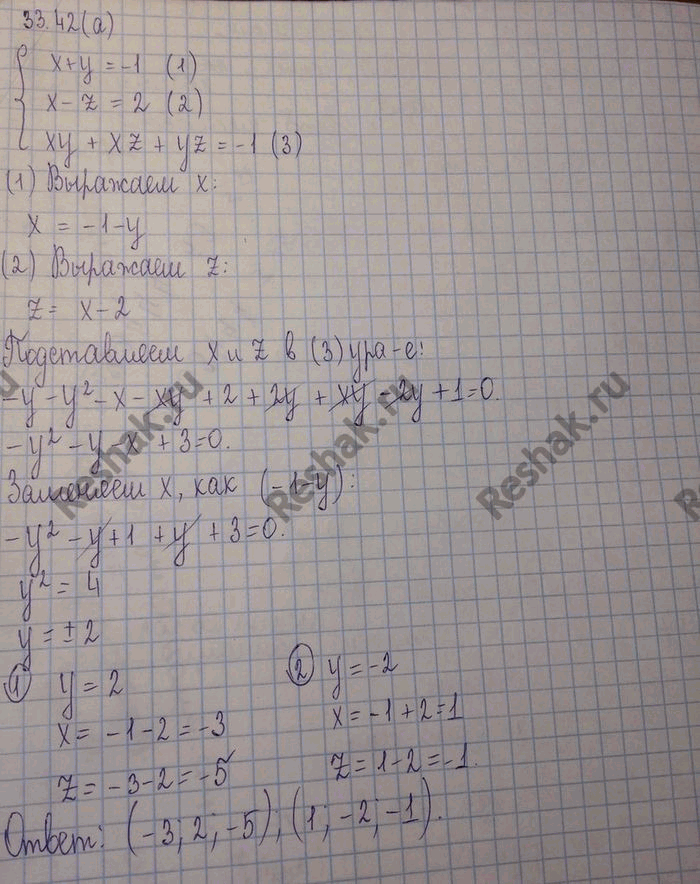 33.42(а)
x+y = -1 (1)
x - z = 2 (2)
xy + xz + yz = -1 (3)
(1) Выражаем x:
x = -1-y
(2) Выражаем z:
z = x-2
Подставляем x и z в (3) ура-е:
-y - y² - x - xy + 2 + 2y + xy - 2y + 1 = 0.
-y² - y - x + 3 = 0.
Заменяем x, как (-1-y):
-y² - y + 1 + y + 3 = 0.
y² = 4
y = ±2
1 y = 2
x = -1-2 = -3
z = -3-2 = -5
2 y = -2
x = -1+2 = 1
z = 1-2 = -1.
Ответ: (-3; 2; -5); (1; -2; -1).
Reshak.ru
Reshak.ru
Reshak.ru